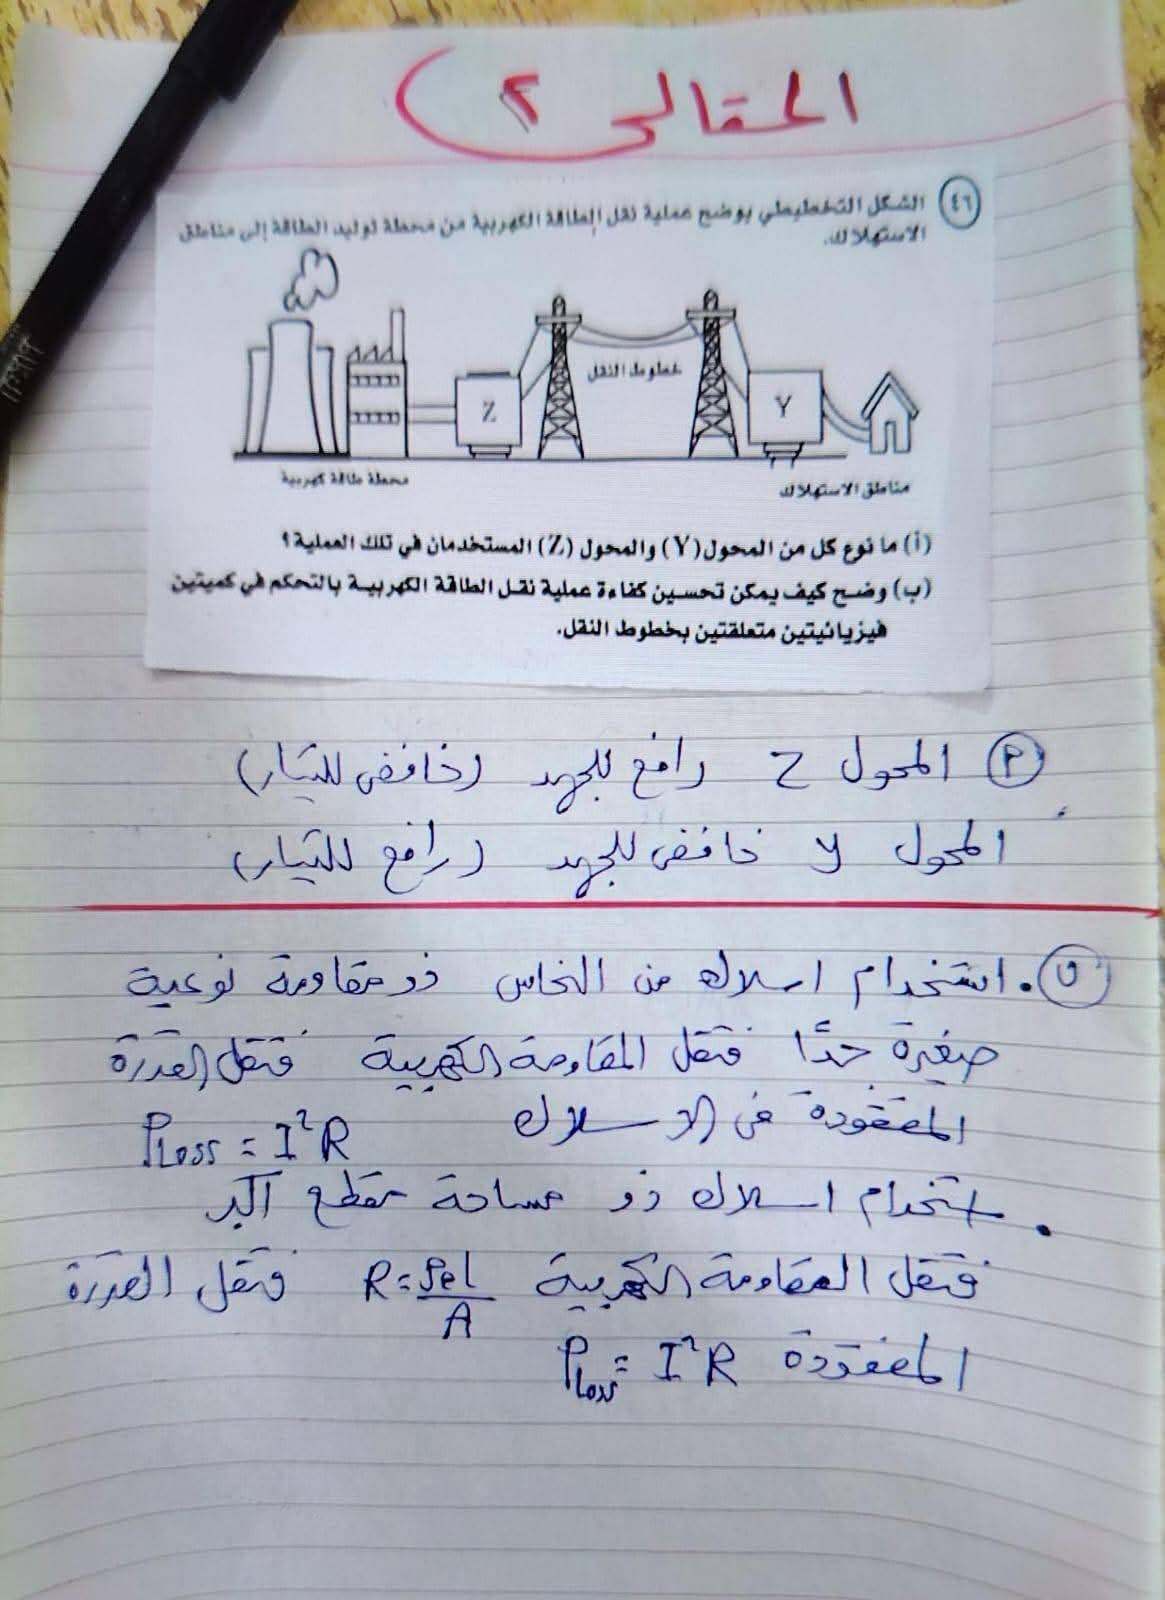 المقالى ٢
٤٦ الشكل التخطيطي يوضح عملية نقل الطاقة الكهربية من محطة توليد الطاقة إلى مناطق
الاستهلاك.
خطوط النقل
Z
Y
محطة طاقة كهربية
مناطق الاستهلاك
(أ) ما نوع كل من المحول (Y) والمحول (Z) المستخدمان في تلك العملية؟
(ب) وضح كيف يمكن تحسين كفاءة عملية نقل الطاقة الكهربية بالتحكم في كميتين
فيزيائيتين متعلقتين بخطوط النقل.
أ المحول Z رافع للجهد (خافض للتيار)
المحول y خافض للجهد (رافع للتيار)
ب . استخدام اسلاك من النحاس ذو مقاومة نوعية
صغيرة جدًا فتقل المقاومة الكهربية فتقل القدرة
المفقودة فى الاسلاك P_Loss = I²R
. استخدام اسلاك ذو مساحة مقطع اكبر
فتقل المقاومة الكهربية R = ρe l / A فتقل القدرة
المفقودة P_loss = I²R